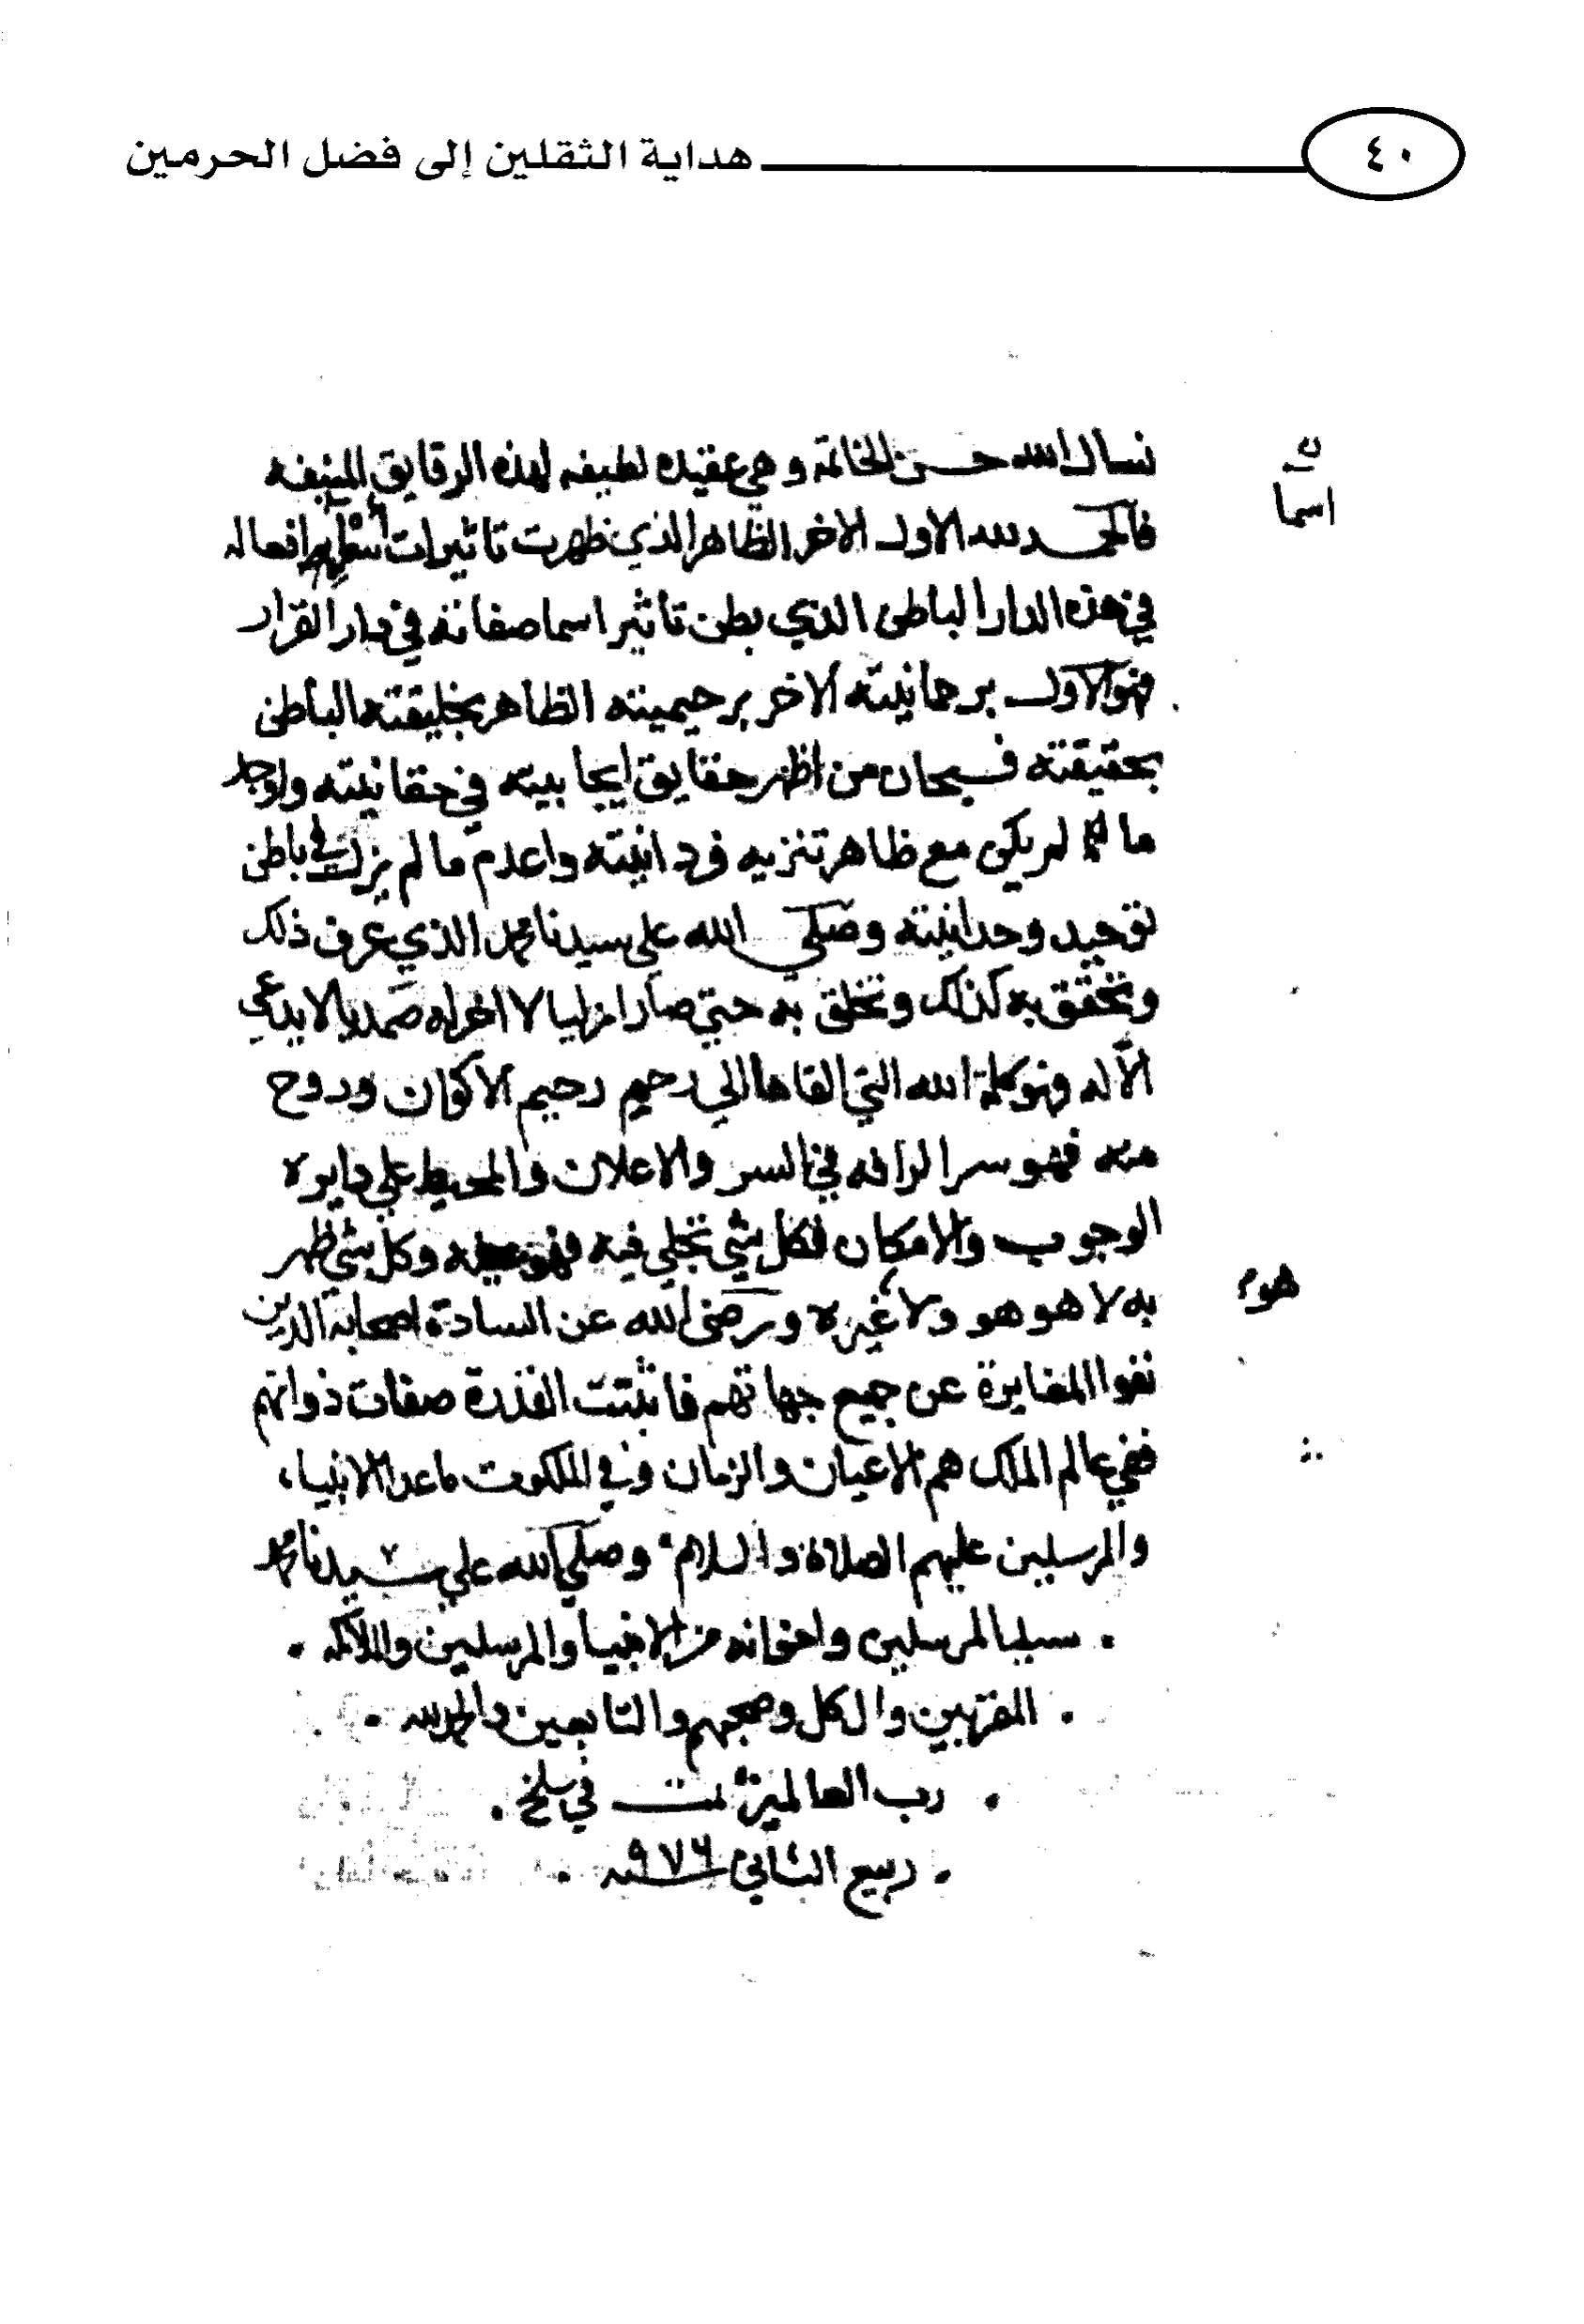 ٤٠
هداية الثقلين إلى فضل الحرمين
نسال الله حسن الخاتمة وهي عقيده لطيفه لهذه الرقايق المنيفه
ن
اسما
فالحمد لله الاول الاخر الظاهر الذي ظهرت تاثيرات افعاله
في هذه الدار الباطن الذي بطن تاثير اسما صفاته في دار القرار
فهو الاول برحمانيته الاخر برحيميته الظاهر بخليقته الباطن
بحقيقته فسبحان من اظهر حقايق ايجابيته في حقانيته واوجد
ما لم يكن مع ظاهر تنزيه فردانيته واعدم ما لم يزل في باطن
توحيد وحدانيته وصلى الله على سيدنا محمد الذي عرف ذلك
وتحقق به كذلك وتخلق به حتى صار ازليا لا اخر له صمديا لا يدعي
الاله وهو كلمة الله التي القاها الى رحم رحيم الاكوان وروح
منه فهو سر الرافه في السر والاعلان والمحيط على دايره
الوجوب والامكان فكل شي تجلي فيه فهو وكل شي ظهر
هو
به لا هو هو ولا غيره ورضي الله عن السادة اصحابه الذين
نفوا المغايرة عن جميع جهاتهم فاثبتت القدرة صفات ذواتهم
ففي عالم الملك هم الاعيان والزمان وفي الملكوت ماعدا الانبياء
والمرسلين عليهم الصلاة والسلام وصلى الله على سيدنا محمد
سيد المرسلين واخوانه من الانبيا والمرسلين والملائكه
المقربين وال كل وصحبهم والتابعين والحمد لله
رب العالمين تمت في سلخ
ربيع الثاني سنه ٩٧٦